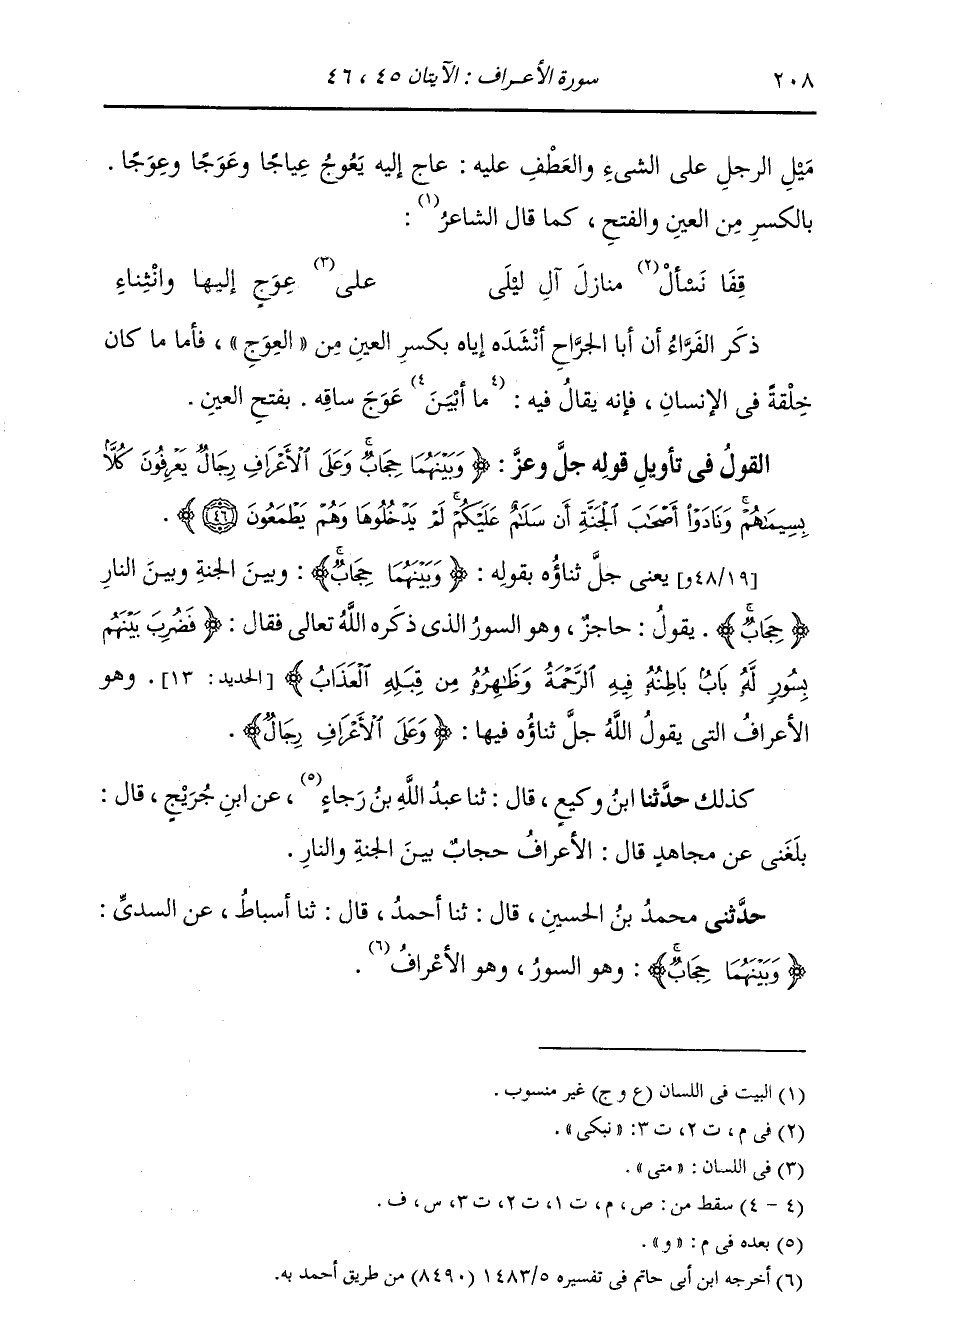 ٢٠٨ سورة الأعراف : الآيتان ٤٥ ، ٤٦
مَيْلِ الرجلِ على الشىءِ والعَطْفِ عليه : عاج إليه يَعُوجُ عِياجًا وعَوَجًا وعِوَجًا .
بالكسرِ مِن العينِ والفتحِ ، كما قال الشاعرُ(١) :
قِفَا نَسْألْ(٢) منازلَ آلِ ليْلَى على(٣) عِوَجٍ إليها وانْثِناءِ
ذكَر الفَرَّاءُ أن أبا الجرَّاحِ أنْشَدَه إياه بكسرِ العينِ مِن « العِوَجِ » ، فأما ما كان
خِلْقةً فى الإنسانِ ، فإنه يقالُ فيه : (٤ ما أبْيَنَ ٤) عَوَجَ ساقِه . بفتحِ العينِ .
القولُ فى تأويلِ قولِه جلَّ وعزَّ : ﴿ وَبَيْنَهُمَا حِجَابٌ ۚ وَعَلَى ٱلْأَعْرَافِ رِجَالٌ يَعْرِفُونَ كُلًّۢا
بِسِيمَىٰهُمْ ۚ وَنَادَوْا۟ أَصْحَٰبَ ٱلْجَنَّةِ أَن سَلَٰمٌ عَلَيْكُمْ ۚ لَمْ يَدْخُلُوهَا وَهُمْ يَطْمَعُونَ ٤٦ ﴾ .
[٤٨/١٩و] يعنى جلَّ ثناؤُه بقولِه : ﴿ وَبَيْنَهُمَا حِجَابٌ ۚ ﴾ : وبينَ الجنةِ وبينَ النارِ
﴿ حِجَابٌ ۚ ﴾ . يقولُ : حاجزٌ ، وهو السورُ الذى ذكَره اللَّهُ تعالى فقال : ﴿ فَضُرِبَ بَيْنَهُم
بِسُورٍ لَّهُۥ بَابٌۢ بَاطِنُهُۥ فِيهِ ٱلرَّحْمَةُ وَظَٰهِرُهُۥ مِن قِبَلِهِ ٱلْعَذَابُ ﴾ [الحديد : ١٣] . وهو
الأعرافُ التى يقولُ اللَّهُ جلَّ ثناؤُه فيها : ﴿ وَعَلَى ٱلْأَعْرَافِ رِجَالٌ ﴾ .
كذلك حدَّثنا ابنُ وكيعٍ ، قال : ثنا عبدُ اللَّهِ بنُ رَجاءٍ(٥) ، عن ابنِ جُرَيْجٍ ، قال :
بلَغَنى عن مجاهدٍ قال : الأعرافُ حجابٌ بينَ الجنةِ والنارِ .
حدَّثنى محمدُ بنُ الحسينِ ، قال : ثنا أحمدُ ، قال : ثنا أسباطُ ، عن السدىِّ :
﴿ وَبَيْنَهُمَا حِجَابٌ ۚ ﴾ : وهو السورُ ، وهو الأعْرافُ(٦) .
(١) البيت فى اللسان (ع و ج) غير منسوب .
(٢) فى م ، ت ٢ ، ت ٣ : « نبكى » .
(٣) فى اللسان : « متى » .
(٤ - ٤) سقط من : ص ، م ، ت ١ ، ت ٢ ، ت ٣ ، س ، ف .
(٥) بعده فى م : « و » .
(٦) أخرجه ابن أبى حاتم فى تفسيره ١٤٨٣/٥ (٨٤٩٠) من طريق أحمد به .